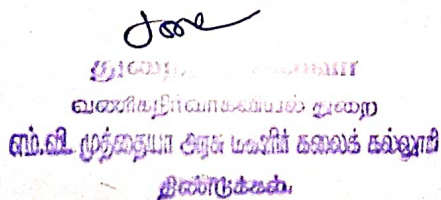 துறைத் தலைவர்
வணிகநிர்வாகவியல் துறை
எம்.வி. முத்தையா அரசு மகளிர் கலைக் கல்லூரி
திண்டுக்கல்.